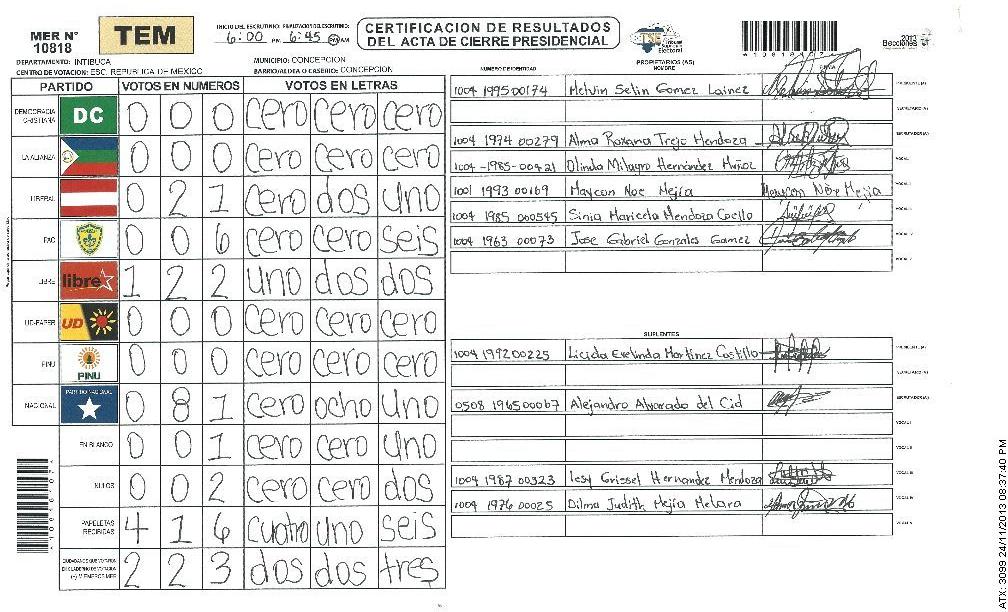 MER N° 10818
TEM
INICIO DEL ESCRUTINIO: FINALIZACION DEL ESCRUTINIO:
6:00 PM 6:45 PM AM
CERTIFICACION DE RESULTADOS
DEL ACTA DE CIERRE PRESIDENCIAL
TSE Tribunal Supremo Electoral
2013
Elecciones
DEPARTAMENTO: INTIBUCA
MUNICIPIO: CONCEPCION
CENTRO DE VOTACION: ESC. REPUBLICA DE MEXICO
BARRIO/ALDEA O CASERIO: CONCEPCION
PARTIDO VOTOS EN NUMEROS VOTOS EN LETRAS
DEMOCRACIA CRISTIANA DC 0 0 0 cero cero cero
LA ALIANZA 0 0 0 cero cero cero
LIBERAL 0 2 1 cero dos uno
PAC 0 0 6 cero cero seis
LIBRE libre 1 2 2 uno dos dos
UD-FAPER UD 0 0 0 cero cero cero
PINU PINU 0 0 0 cero cero cero
NACIONAL PARTIDO NACIONAL 0 8 1 cero ocho uno
EN BLANCO 0 0 1 cero cero uno
NULOS 0 0 2 cero cero dos
PAPELETAS RECIBIDAS 4 1 6 cuatro uno seis
CIUDADANOS QUE VOTARON EN CUADERNO DE VOTACION (+) MIEMBROS MER 2 2 3 dos dos tres
NUMERO DE IDENTIDAD PROPIETARIOS (AS) NOMBRE FIRMA
1004 199500174 Melvin Selin Gomez Lainez PRESIDENTE (A)
SECRETARIO (A)
1004 1974 00279 Alma Roxana Trejo Mendoza ESCRUTADOR (A)
1004-1985-00421 Olinda Milagro Hernández Muñoz VOCAL I
1001 1993 00169 Maycon Noe Mejía Maycon Noe Mejia
1004 1985 000545 Sinia Maricela Mendoza Coello
1004 1963 00073 Jose Gabriel Gonzales Gamez
SUPLENTES
1004 199200225 Licida Evelinda Martinez Castillo PRESIDENTE (A)
SECRETARIO (A)
0508 196500067 Alejandro Alvarado del Cid ESCRUTADOR (A)
VOCAL I
VOCAL II
1004 1987 00323 Iesy Grissel Hernandez Mendoza VOCAL III
1004 1976 00025 Dilma Judith Mejía Melara VOCAL IV
VOCAL V
ATX: 3099 24/11/2013 08:37:40 PM